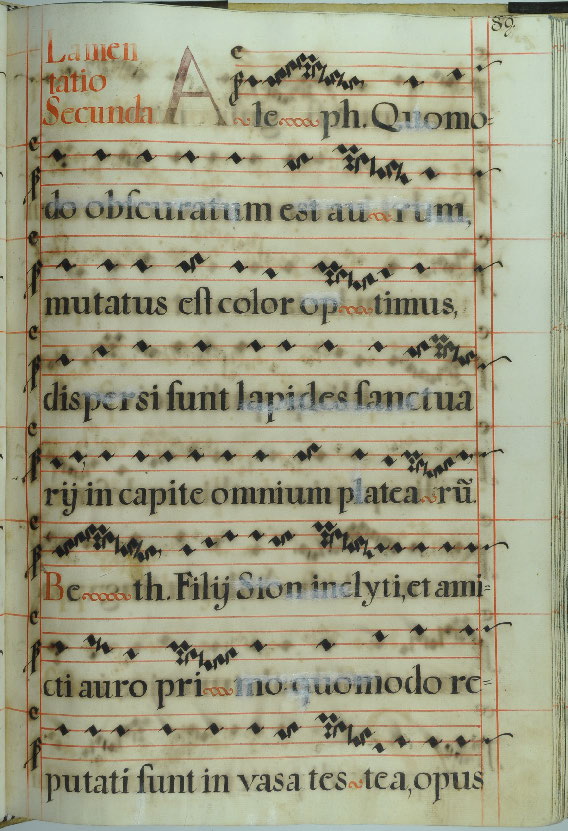 89.
Lamen
tatio
Secunda
Ale ph. Quomo=
do obſcuratum est au rum,
mutatus eſt color op timus,
dispersi ſunt lapides ſanctua
rij in capite omnium platea rũ.
Be th. Filij Sion inclyti, et ami=
cti auro pri mo quomodo re=
putati ſunt in vasa tes tea, opus